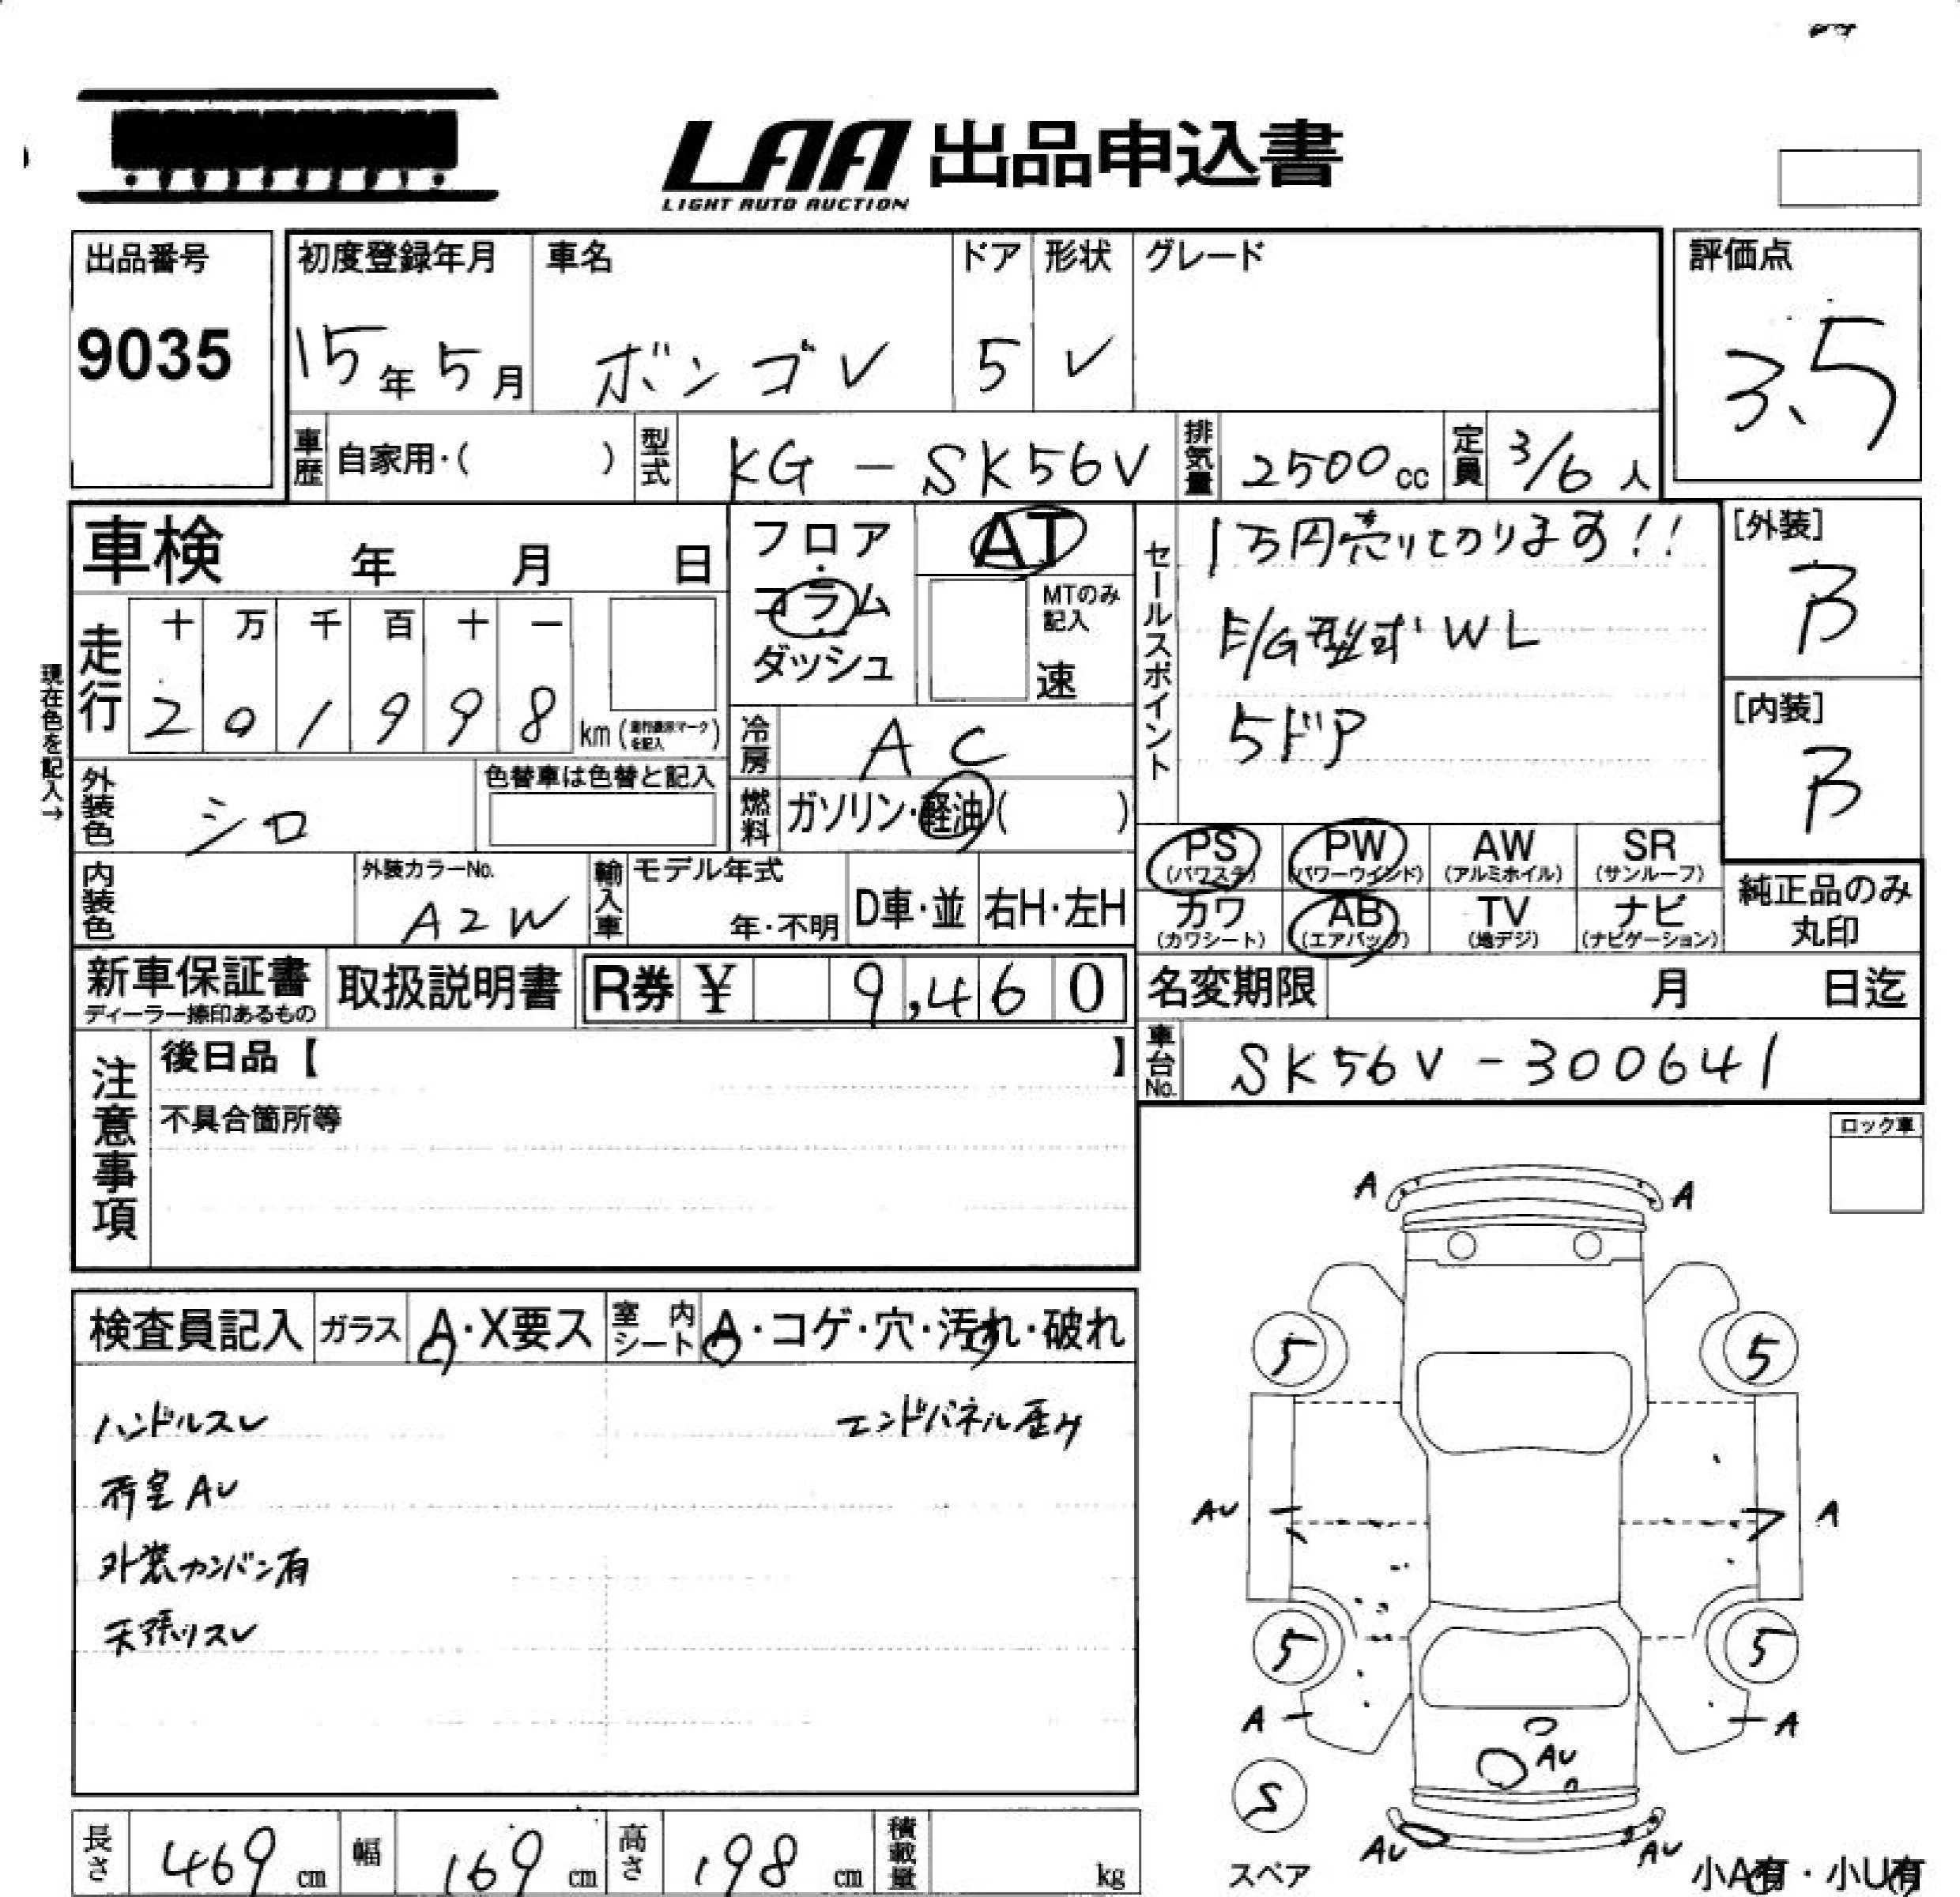 LAA 出品申込書
LIGHT AUTO AUCTION
出品番号 初度登録年月 車名 ドア 形状 グレード 評価点
9035 15年 5月 ボンゴV 5 V 3.5
車歴 自家用・( ) 型式 KG-SK56V 排気量 2500cc 定員 3/6人
車検 年 月 日
フロア・コラム・ダッシュ
AT
MTのみ記入
速
セールスポイント
1万円売り切ります!!
E/G型式 WL
5ドア
[外装]
B
[内装]
B
現在色を記入→
走行 十 万 千 百 十 一
2 0 1 9 9 8 km
冷房 AC
外装色 シロ 色替車は色替と記入
燃料 ガソリン・軽油( )
PS (パワステ) PW (パワーウインド) AW (アルミホイル) SR (サンルーフ)
カワ (カワシート) AB (エアバッグ) TV (地デジ) ナビ (ナビゲーション)
純正品のみ
丸印
内装色 外装カラーNo. A2W 輸入車 モデル年式 年・不明 D車・並 右H・左H
新車保証書 取扱説明書 R券 ¥ 9,460
ディーラー捺印あるもの
名変期限 月 日迄
車台No. SK56V-300641
注意事項
後日品【 】
不具合箇所等
ロック車
検査員記入 ガラス A・X要ス 室内シート A・コゲ・穴・汚れ・破れ
ハンドルスレ エンドパネル歪み
荷室AU
外装カンバン有
天張リスレ
A A
5 5
AU A
5 5
A A
AU
S
スペア
AU AU
小A有・小U有
長さ 469cm 幅 169cm 高さ 198cm 積載量 kg